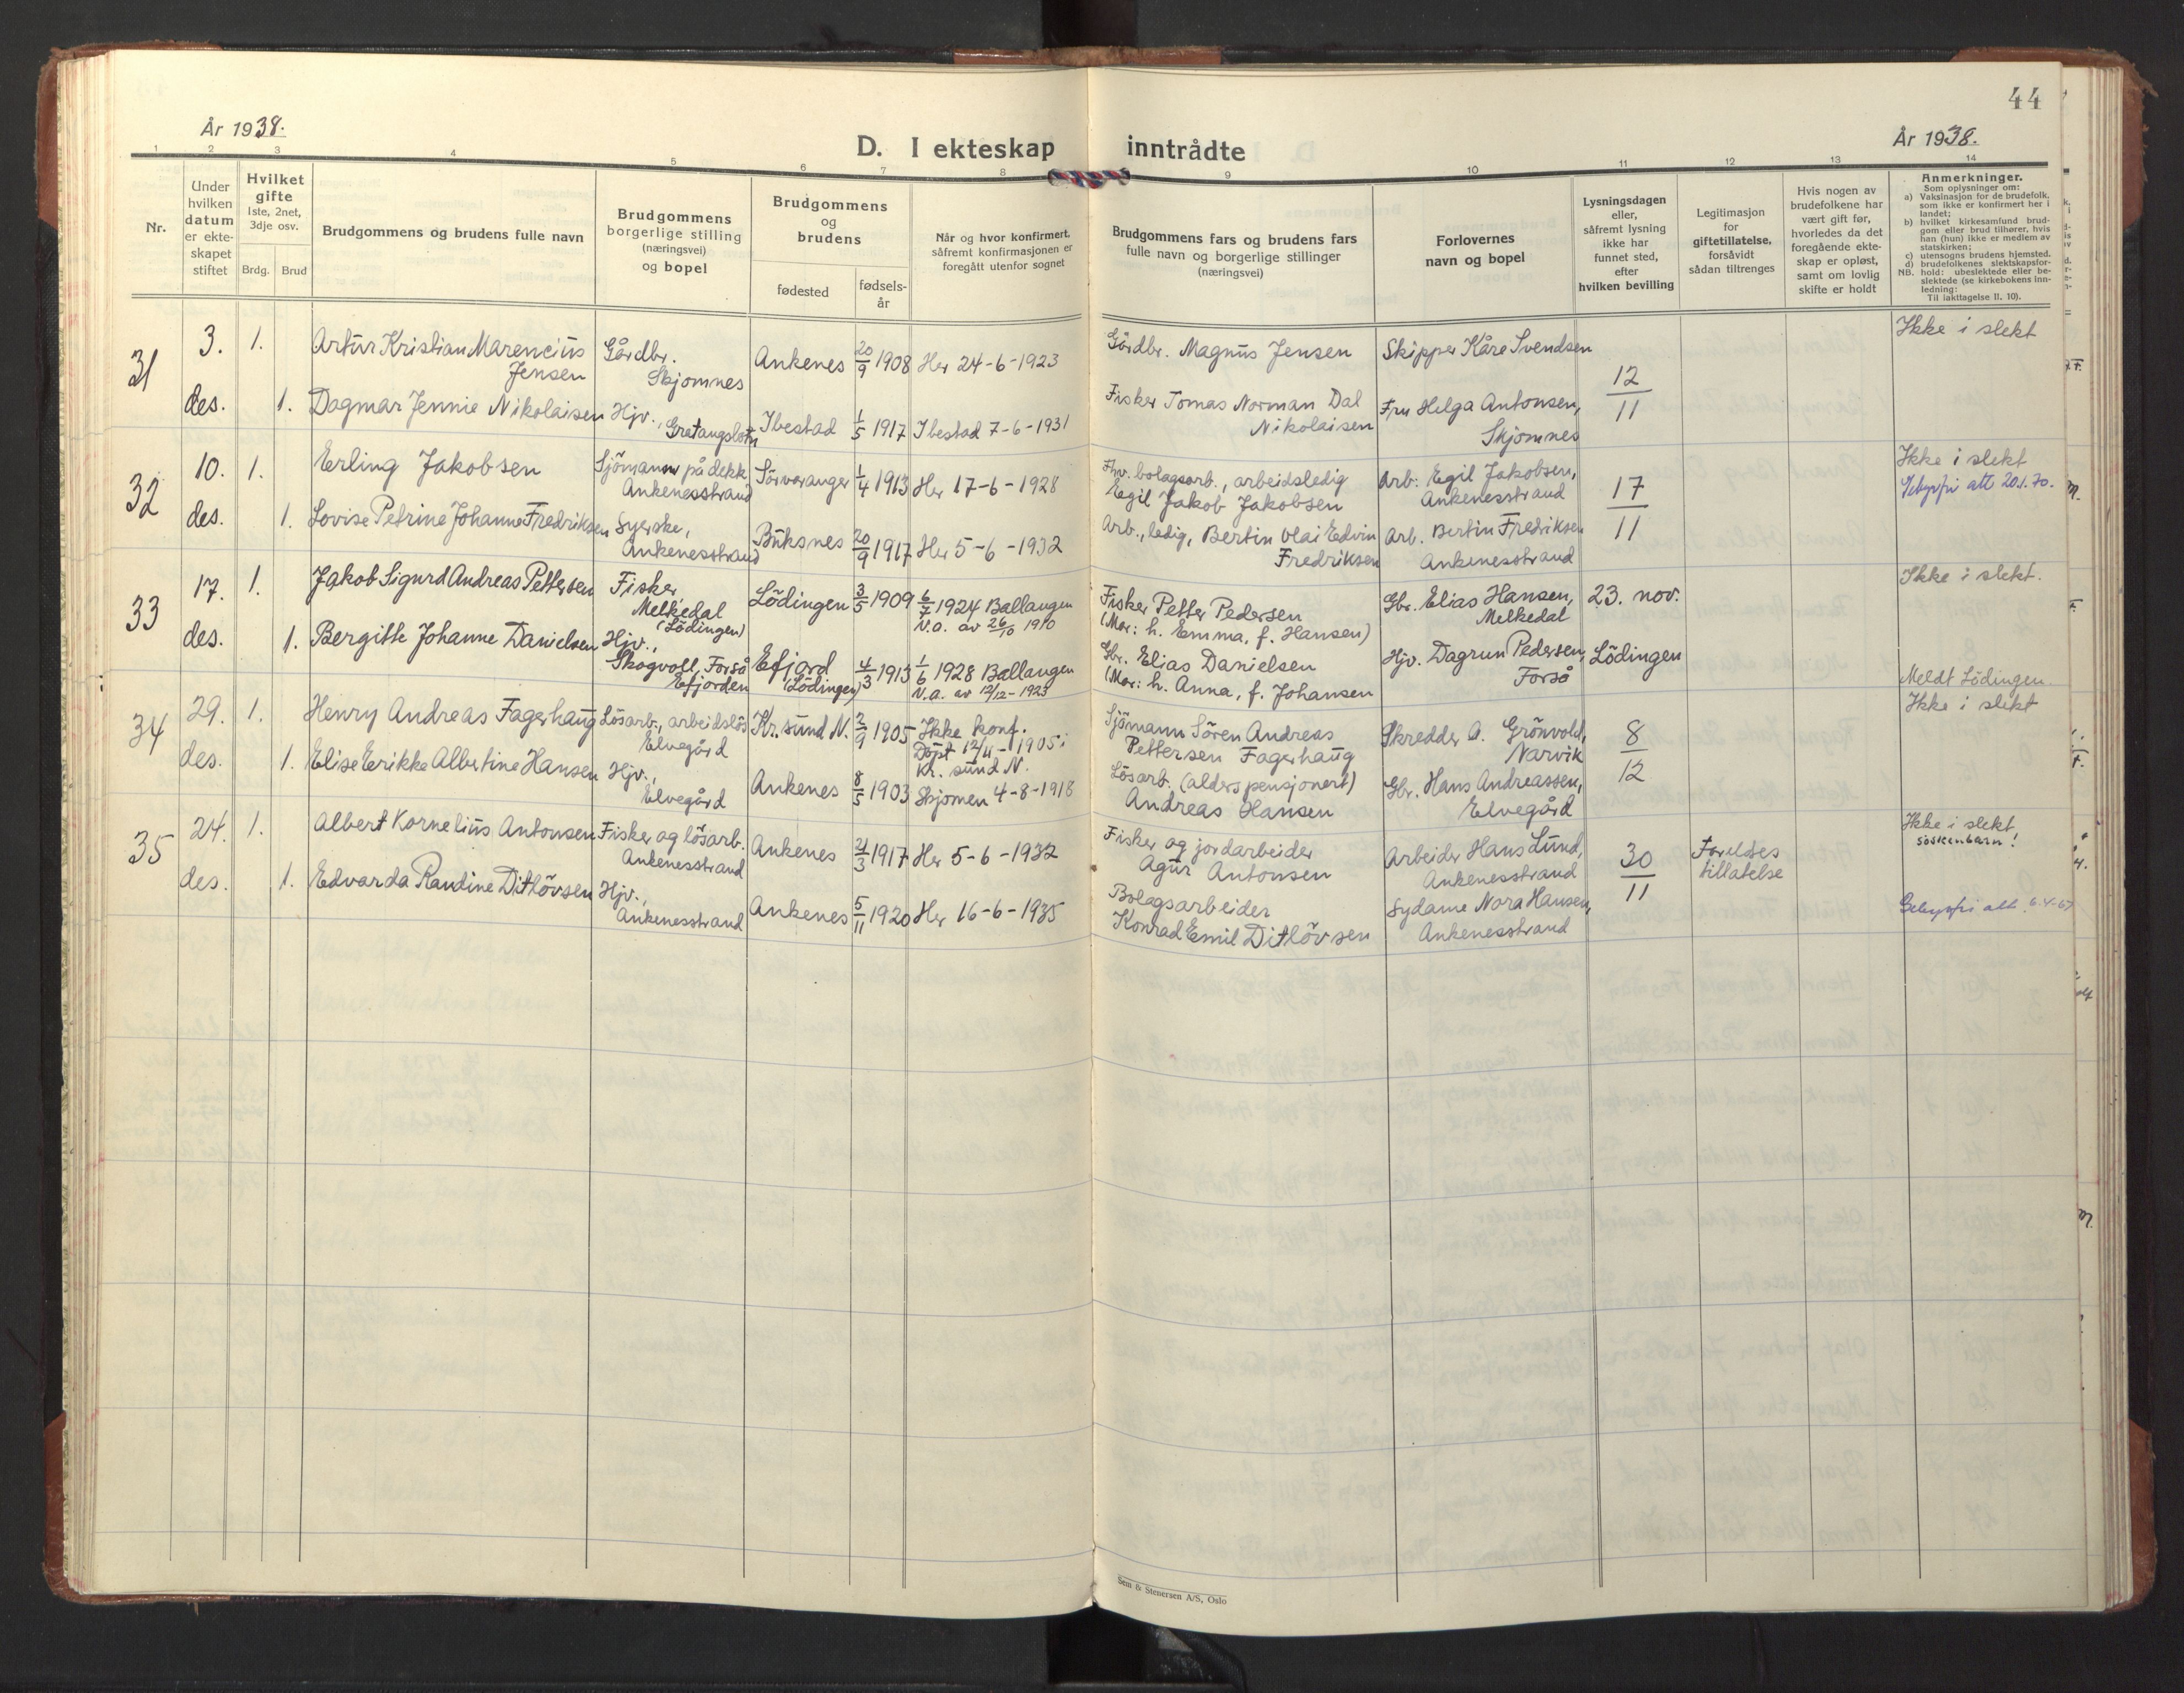 44
År 1938.
År 1938.
D. I ekteskap inntrådte
1 2 3 4 5 6 7 8 9 10 11 12 13 14
Nr.
Under hvilken datum er ekte-skapet stiftet
Hvilket gifte
1ste, 2net, 3dje osv.
Brdg. Brud
Brudgommens og brudens fulle navn
Brudgommens
borgerlige stilling
(næringsvei)
og bopel
Brudgommens
og
brudens
fødested
fødsels-
år
Når og hvor konfirmert,
såfremt konfirmasjonen er
foregått utenfor sognet
Brudgommens fars og brudens fars
fulle navn og borgerlige stillinger
(næringsvei)
Forlovernes
navn og bopel
Lysningsdagen
eller,
såfremt lysning
ikke har
funnet sted,
efter
hvilken bevilling
Legitimasjon
for
giftetillatelse,
forsåvidt
sådan tiltrenges
Hvis nogen av
brudefolkene har
vært gift før,
hvorledes da det
foregående ekte-
skap er opløst,
samt om lovlig
skifte er holdt
Anmerkninger.
Som oplysninger om:
a) Vaksinasjon for de brudefolk,
som ikke er konfirmert her i
landet;
b) hvilket kirkesamfund brud-
gom eller brud tilhører, hvis
han (hun) ikke er medlem av
statskirken;
c) utensogns brudens hjemsted.
d) brudefolkenes slektskapsfor-
NB. hold: ubeslektede eller be-
slektede (se kirkebokens inn-
ledning:
Til iakttagelse II. 10).
31
3. des.
1.
Artur Kristian Marencius
Jensen
Gårdbr.
Skjomnes
Ankenes
20/9 1908
Her 24-6-1923
Gårdbr. Magnus Jensen
Skipper Kåre Svendsen
12/11
Ikke i slekt
1.
Dagmar Jennie Nikolaisen
Hjv.,
Ibestad
1/5 1917
Ibestad 7-6-1931
Fisker Tomas Norman Dal
Nikolaisen
Fru Helga Antonsen,
Skjomnes
32
10. des.
1.
Erling Jakobsen
Sjömann på dekk
Ankenesstrand
Sörvaranger
1/4 1913
Her 17-6-1928
Fhv. bolagsarb., arbeidsledig
Egil Jakob Jakobsen
Arb. Egil Jakobsen,
Ankenesstrand
17/11
Ikke i slekt
att 20.1.70.
1.
Lovise Petrine Johanne Fredriksen
Syerske,
Ankenesstrand
Buksnes
20/9 1917
Her 5-6-1932
Arb., ledig, Bertin Olai Edvin
Fredriksen
Arb. Bertin Fredriksen
Ankenesstrand
33
17. des.
1.
Jakob Sigurd Andreas Pettersen
Fisker,
Melkedal
(Lödingen)
Lödingen
3/5 1909
1924 Ballangen
V.a. av 26/10 1910
Fisker Petter Pedersen
(Mor: h. Emma, f. Hansen)
Gbr. Elias Hansen,
Melkedal
23. nov.
Lödingen
Ikke i slekt.
1.
Bergitte Johanne Danielsen
Hjv.,
Skogvoll, Forså
Efjorden
Efjord
(Lödingen)
4/3 1913
1/6 1928 Ballangen
V.a. av 12/12-1923
Gbr. Elias Danielsen
(Mor: h. Anna, f. Johansen
Hjv. Dagrun Pedersen,
Forså
Meldt Lödingen.
34
29. des.
1.
Henry Andreas Fagerhaug
Lösarb., arbeidslös
Elvegård
Kr.sund N.
2/9 1905
Ikke konf.
Döpt 12/11-1905 i
Kr. sund N.
Sjömann Sören Andreas
Pettersen Fagerhaug
Skredder A. Grönvold,
Narvik
8/12
Ikke i slekt
1.
Elise Erikke Albertine Hansen
Hjv.,
Elvegård
Ankenes
8/5 1903
Skjomen 4-8-1918
Lösarb. (alderspensjonert)
Andreas Hansen
Gbr. Hans Andreassen,
Elvegård
35
24. des.
1.
Albert Kornelius Antonsen
Fisker og lösarb.
Ankenesstrand
Ankenes
21/3 1917
Her 5-6-1932
Fisker og jordarbeider
Agur Antonsen
Arbeider Hans Lund,
Ankenesstrand
30/11
Foreldres
tillatelse
Ikke i slekt,
söskenbarn!
1.
Edvarda Randine Ditlövsen
Hjv.,
Ankenesstrand
Ankenes
5/11 1920
Her 16-6-1935
Bolagsarbeider
Konrad Emil Ditlövsen
Sydame Nora Hansen,
Ankenesstrand
Gebyrfri att. 6.4.67
Sem & Stenersen A/S, Oslo